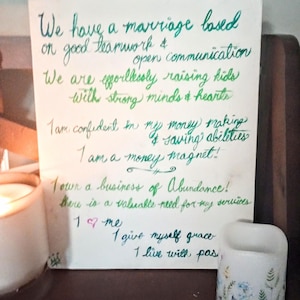 We have a marriage based
on good teamwork &
open communication
We are effortlessly raising kids
with strong minds & hearts
I am confident in my money making
& saving abilities
I am a money magnet!
I own a business of Abundance!
there is a valuable need for my services
I ♡ me
I give myself grace
I live with